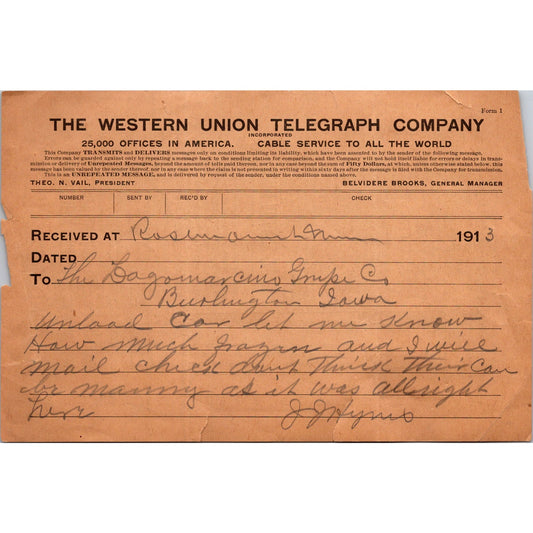 Form 1
THE WESTERN UNION TELEGRAPH COMPANY
INCORPORATED
25,000 OFFICES IN AMERICA. CABLE SERVICE TO ALL THE WORLD
This Company TRANSMITS and DELIVERS messages only on conditions limiting its liability, which have been assented to by the sender of the following message.
Errors can be guarded against only by repeating a message back to the sending station for comparison, and the Company will not hold itself liable for errors or delays in trans-
mission or delivery of Unrepeated Messages, beyond the amount of tolls paid thereon, nor in any case beyond the sum of Fifty Dollars, at which, unless otherwise stated below, this
message has been valued by the sender thereof, nor in any case where the claim is not presented in writing within sixty days after the message is filed with the Company for transmission.
This is an UNREPEATED MESSAGE, and is delivered by request of the sender, under the conditions named above.
THEO. N. VAIL, PRESIDENT BELVIDERE BROOKS, GENERAL MANAGER
NUMBER SENT BY REC'D BY CHECK
RECEIVED AT Rosemount Minn 1913
DATED
To The Lagomarcino Grupe Co
Burlington Iowa
Unload car let me know
How much frozen and I will
mail check dont think their can
be manny as it was allright
here J J Hynes